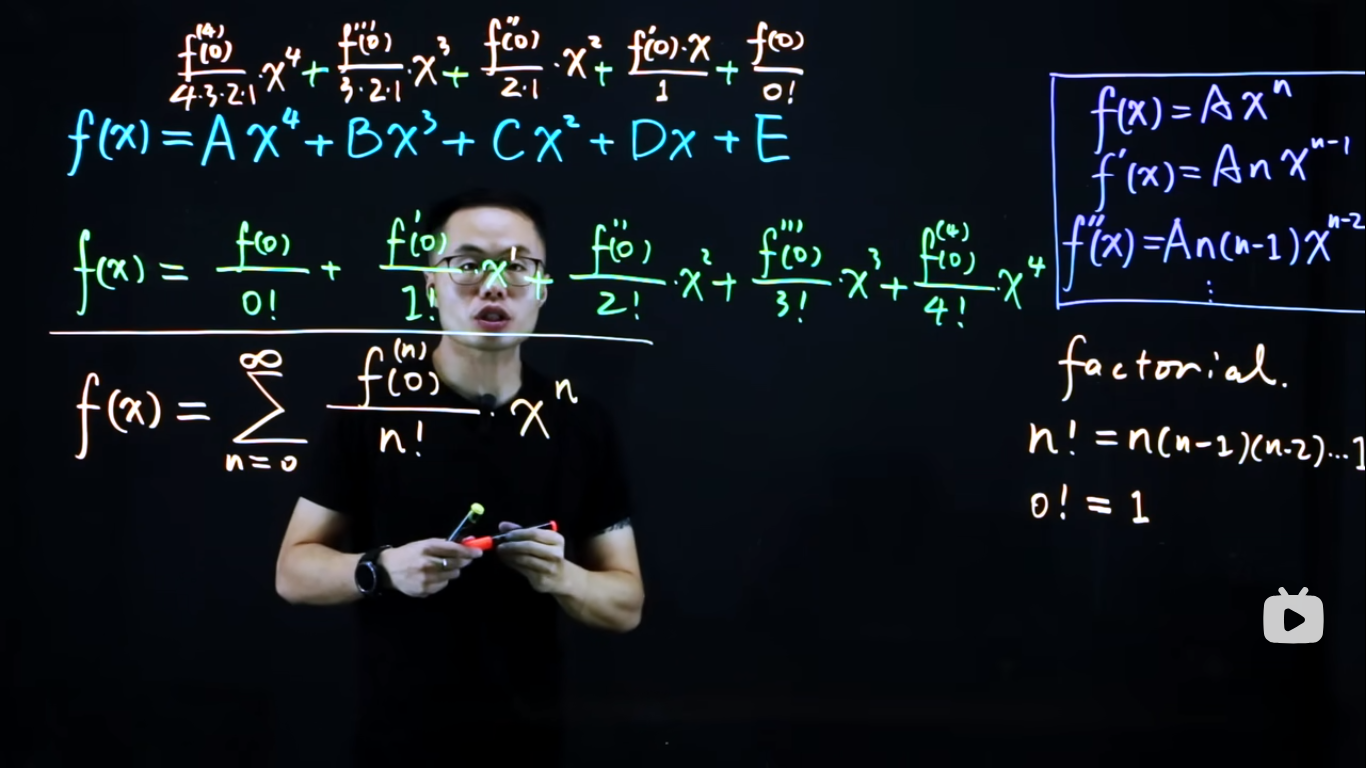 f⁽⁴⁾(0)/4·3·2·1 ·x⁴ + f'''(0)/3·2·1 ·x³ + f''(0)/2·1 ·x² + f'(0)·x/1 + f(0)/0!
f(x) = Ax⁴ + Bx³ + Cx² + Dx + E
f(x) = f(0)/0! + f'(0)/1! ·x¹ + f''(0)/2! ·x² + f'''(0)/3! ·x³ + f⁽⁴⁾(0)/4! ·x⁴
f(x) = ∞∑n=0 f⁽ⁿ⁾(0)/n! ·xⁿ
f(x) = Axⁿ
f'(x) = Anxⁿ⁻¹
f''(x) = An(n-1)xⁿ⁻²
⋮
factorial.
n! = n(n-1)(n-2)...1
0! = 1